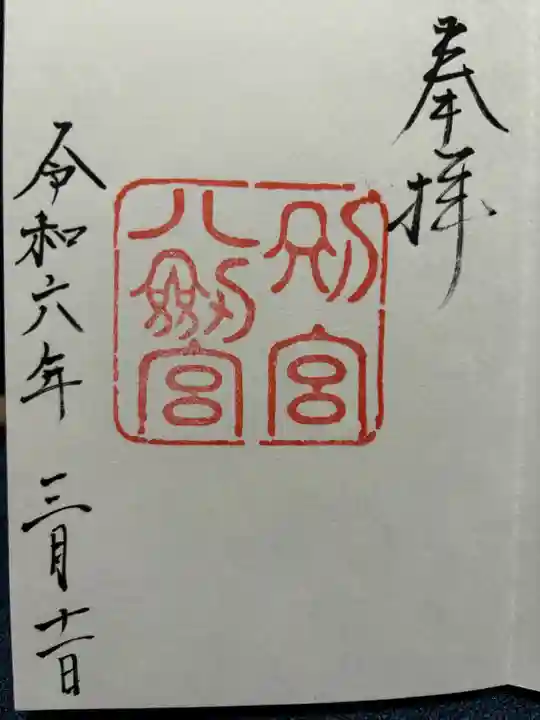 奉拝
別宮
八剱宮
令和六年 三月十一日